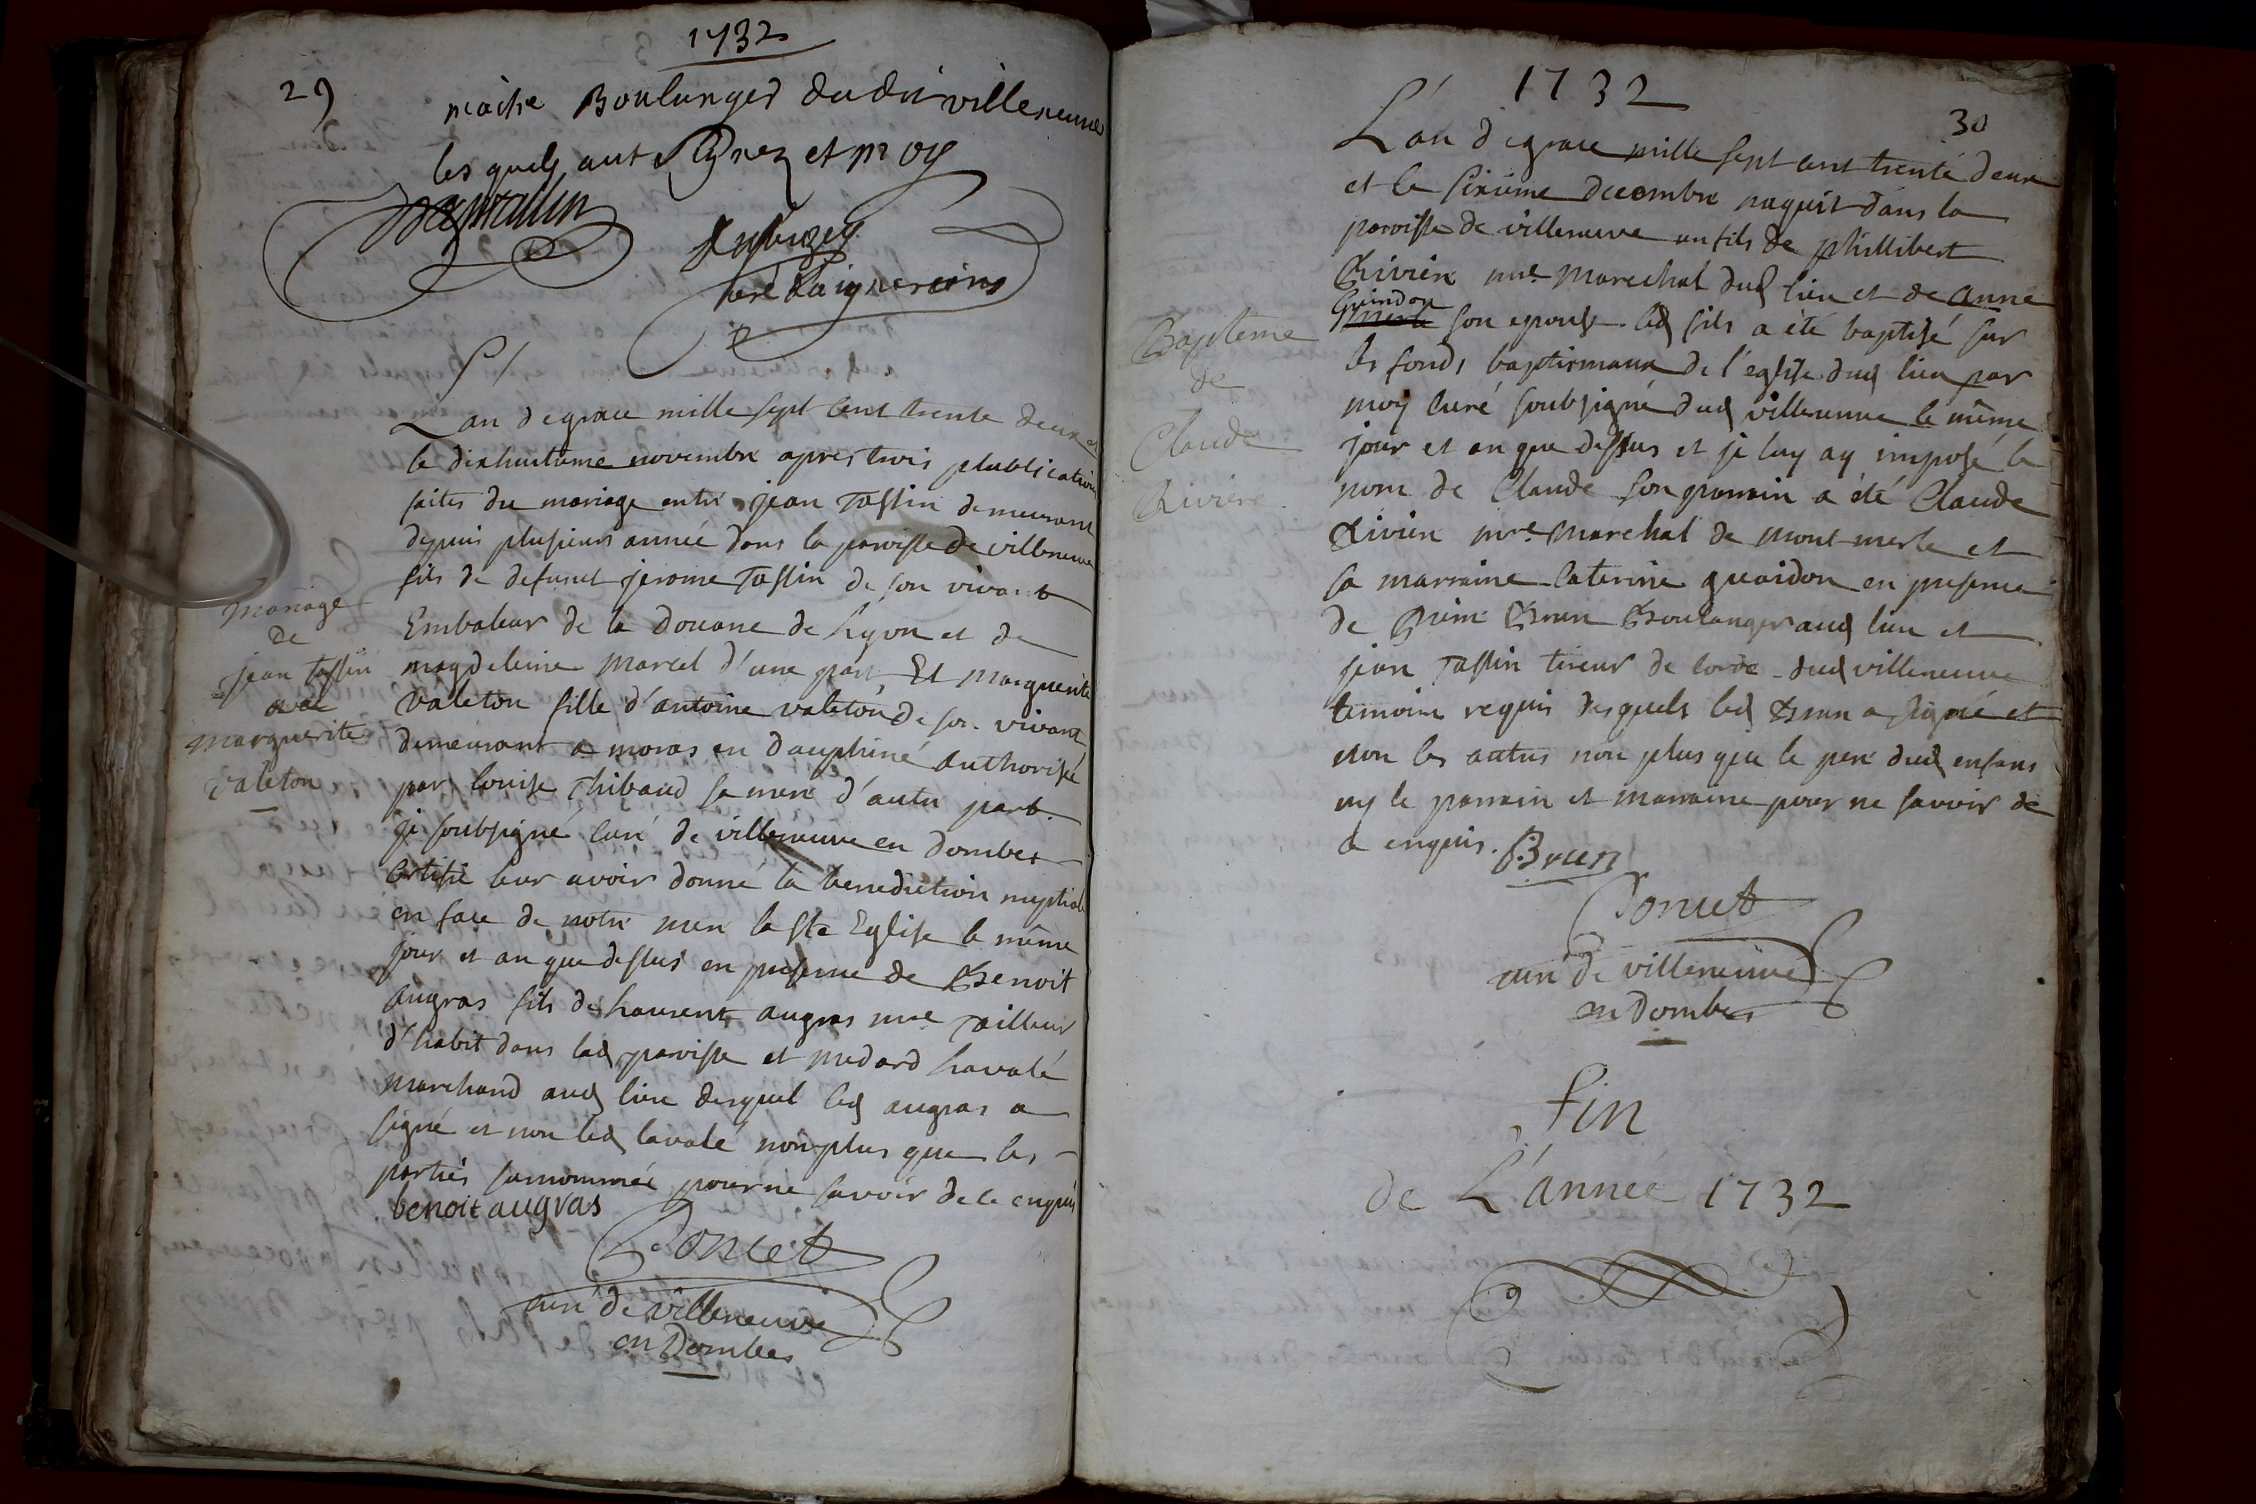 1732
29
Boulanger dudit villeneuve
les quels ont signez et moy
L'an de grace mille sept cent trente deux et
le dixhuitieme novembre apres trois plublications
faites du mariage entre jean Tassin demeurant
depuis plusieurs année dans la paroisse de villeneuve
fils de defunct jerome Tassin de son vivant
Embaleur de la Douane de Lyon et de
magdeleine marcel d'une part, Et marguerite
valeton fille d'antoine valeton de son vivant
demeurant a moras en dauphiné authorisée
par louise Thibaud sa mere d'autre part.
je soubsigné curé de villeneuve en dombes
certifie leur avoir donné la benediction nuptiale
en face de notre mere la ste Eglise le même
jour et an que dessus en presence de Benoit
augras fils de Laurent augras mre Tailleur
d'habit dans lad paroisse et medard Lavalé
marchand aud lieu desquel led augras a
signé et non led lavalé non plus que les
parties susnommées pour ne savoir de ce enquis
benoit augras
Poncet
curé de villeneuve
en Dombes
mariage
de
jean tassin
avec
marguerite
valeton
1732
30
L'an de grace mille sept cent trente deux
et le sixieme decembre naquit dans la
paroisse de villeneuve un fils de phillibert
Riviere mre marechal dud lieu et de anne
Guindon
son epouse led fils a été baptisé sur
les fonds baptismaux de l'eglise dud lieu par
moy curé soubsigné dud villeneuve le même
jour et an que dessus et je luy ay imposé le
nom de Claude son parrain a été Claude
Riviere mre marechal de mont merle et
sa marraine Caterine guaidon en presence
de Brun Boulanger aud lieu et
jean Tassin tireur de corde dud villeneuve
temoins requis desquels led Brun a signé et
non les autres non plus que le pere dud enfans
ny le parrain et marraine pour ne savoir de
ce enquis. Brun
Poncet
curé de villeneuve
en Dombes
Bapteme
de
Claude
Riviere
Fin
de L'année 1732